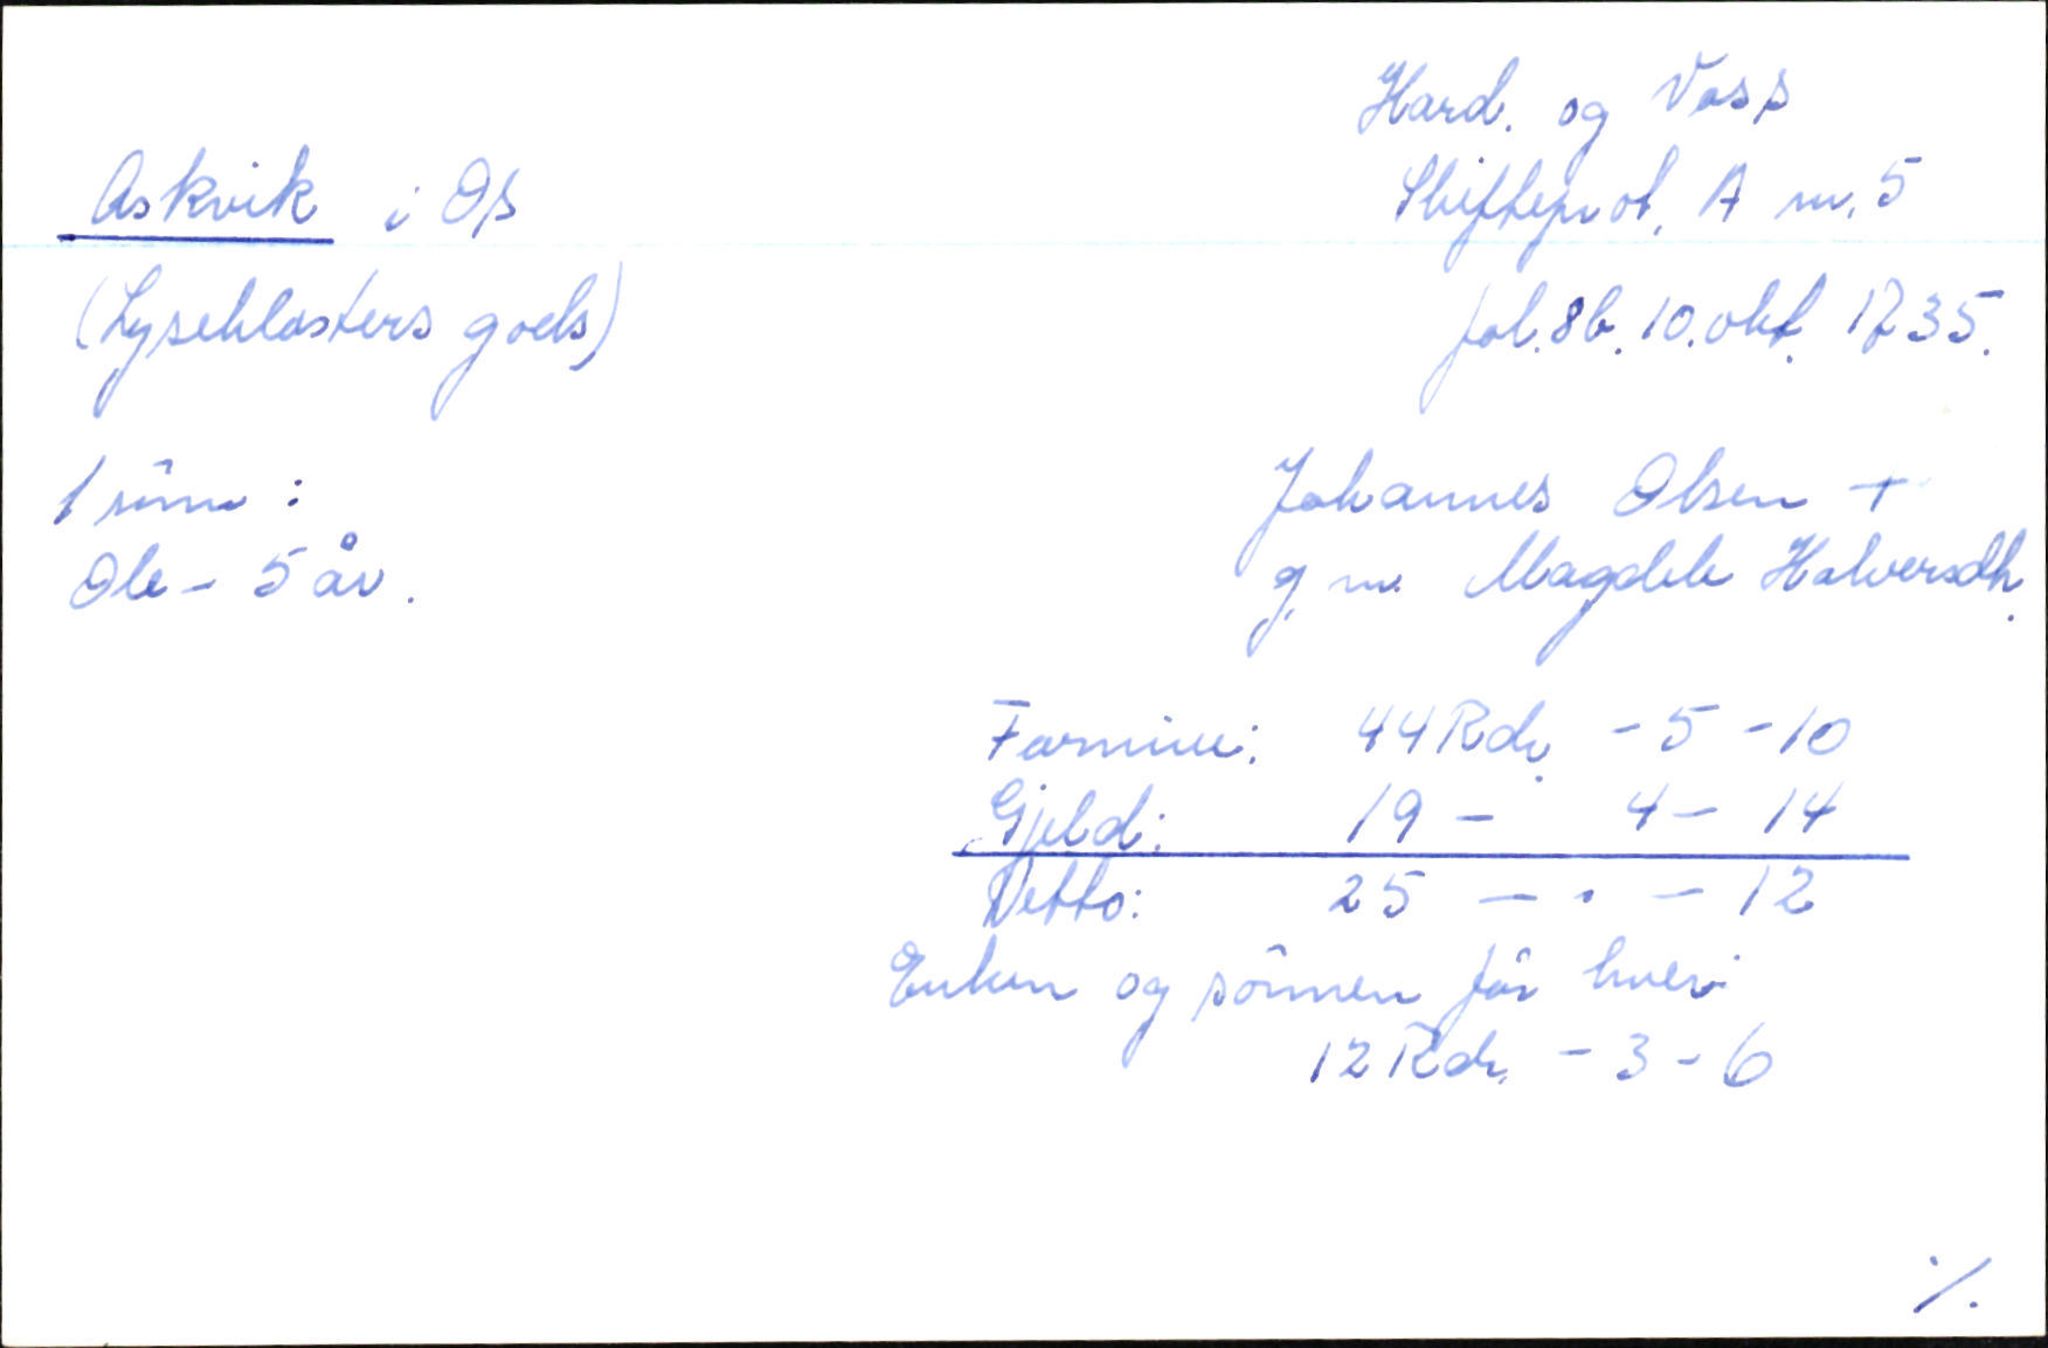 Hard. og Voss
Skifteprot. A nr. 5
fol. 8b. 10. okt. 1735.
Askvik i Os
(Lyseklosters gods)
1 sønn :
Ole - 5 år.
Johannes Olsen +
g.m. Magdele Halversdtr.
Formue: 44 Rdr. - 5 - 10
Gjeld: 19 - 4 - 14
Netto: 25 - . - 12
Enken og sønnen får hver:
12 Rdr. - 3 - 6
./.